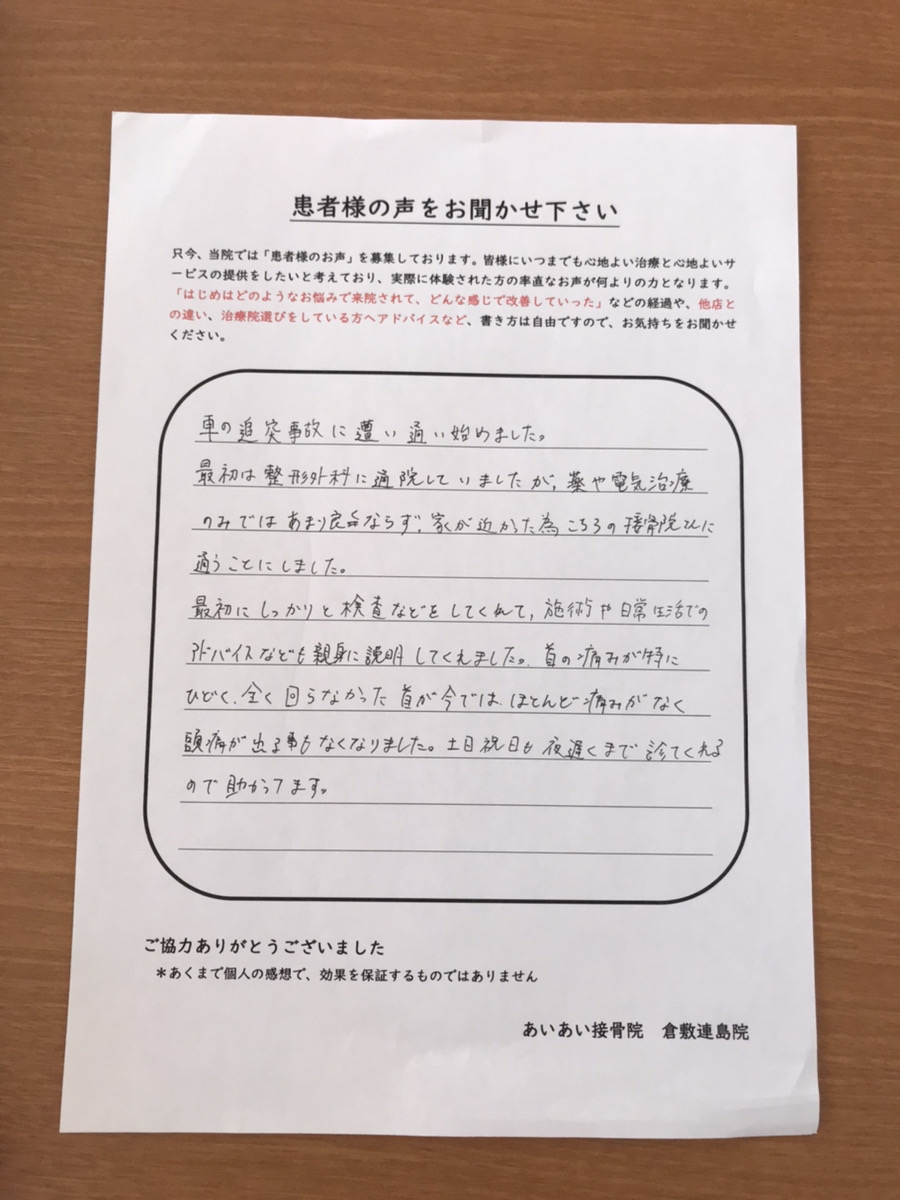 患者様の声をお聞かせ下さい
只今、当院では「患者様のお声」を募集しております。皆様にいつまでも心地よい治療と心地よいサ
ービスの提供をしたいと考えており、実際に体験された方の率直なお声が何よりの力となります。
「はじめはどのようなお悩みで来院されて、どんな感じで改善していった」などの経過や、他店と
の違い、治療院選びをしている方へアドバイスなど、書き方は自由ですので、お気持ちをお聞かせ
ください。
車の追突事故に遭い通い始めました。
最初は整形外科に通院していましたが、薬や電気治療
のみではあまり良くならず、家が近かった為こちらの接骨院さんに
通うことにしました。
最初にしっかりと検査などをしてくれて、施術や日常生活での
アドバイスなども親身に説明してくれました。首の痛みが特に
ひどく、全く回らなかった首が今では、ほとんど痛みがなく
頭痛が出る事もなくなりました。土日祝日も夜遅くまで診てくれる
ので助かってます。
ご協力ありがとうございました
＊あくまで個人の感想で、効果を保証するものではありません
あいあい接骨院　倉敷連島院